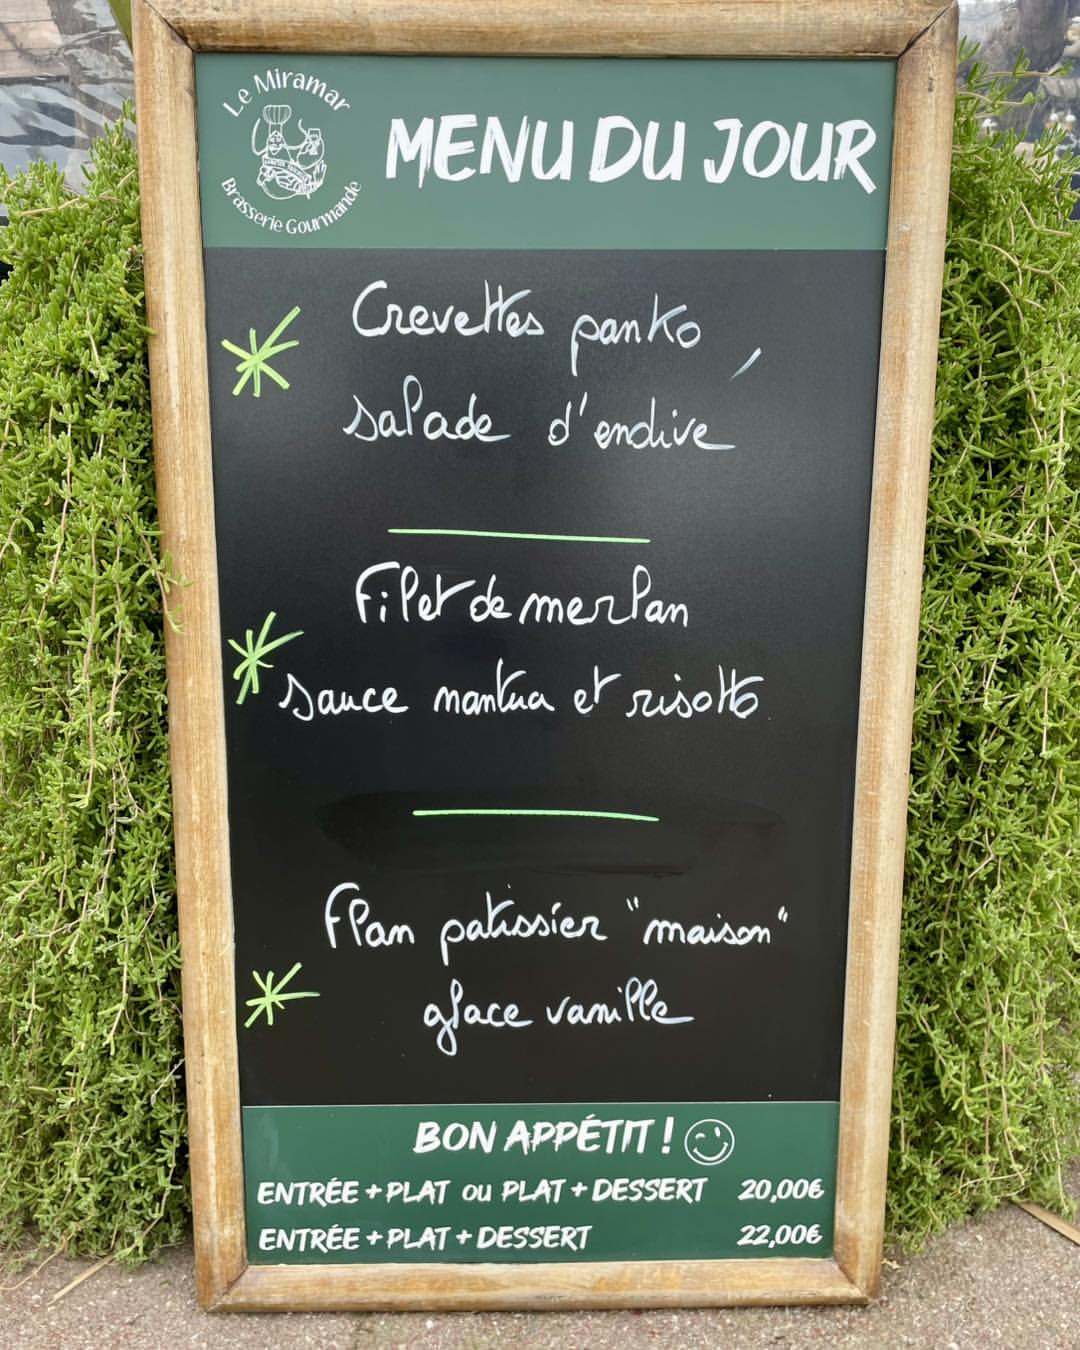 Le Miramar
Brasserie Gourmande
MENU DU JOUR
Crevettes panko,
salade d'endive
Filet de merlan
sauce nantua et risotto
Flan patissier "maison"
glace vanille
BON APPÉTIT !
ENTRÉE + PLAT OU PLAT + DESSERT 20,00€
ENTRÉE + PLAT + DESSERT 22,00€